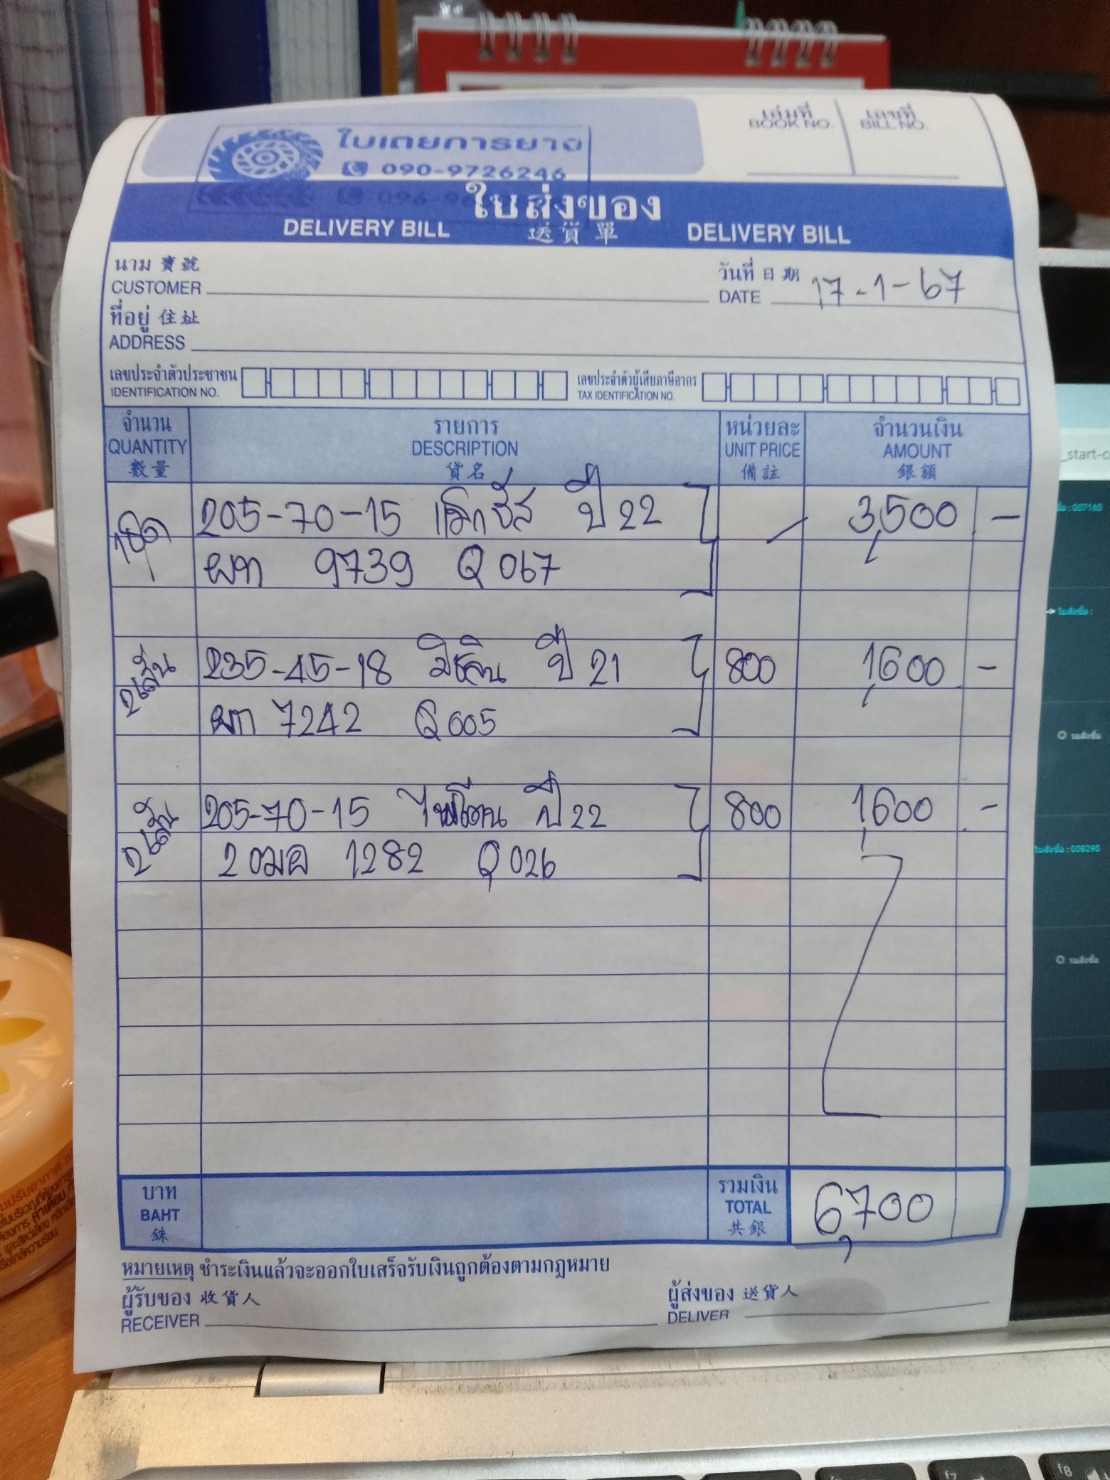 ใบเตยการยาง
090-9726246
096-9
ใบส่งของ
DELIVERY BILL 送貨單 DELIVERY BILL
เล่มที่ เลขที่
BOOK NO. BILL NO.
นาม 寶號
CUSTOMER
วันที่ 日期
DATE 17-1-67
ที่อยู่ 住址
ADDRESS
เลขประจำตัวประชาชน
IDENTIFICATION NO.
เลขประจำตัวผู้เสียภาษีอากร
TAX IDENTIFICATION NO.
จำนวน รายการ หน่วยละ จำนวนเงิน
QUANTITY DESCRIPTION UNIT PRICE AMOUNT
數量 貨名 備註 銀額
1ชุด 205-70-15 ปี 22 3,500 -
ผท 9739 Q067
2เส้น 235-45-18 มิชลิน ปี 21 800 1,600 -
ผท 7242 Q005
2เส้น 205-70-15 ปี 22 800 1,600 -
2ฒผ 1282 Q026
บาท รวมเงิน
BAHT TOTAL 6,700
銖 共銀
หมายเหตุ ชำระเงินแล้วจะออกใบเสร็จรับเงินถูกต้องตามกฎหมาย
ผู้รับของ 收貨人 ผู้ส่งของ 送貨人
RECEIVER DELIVER
_start-c
: 007165
ใบสั่งซื้อ :
รอสั่งซื้อ
ใบสั่งซื้อ : 008295
รอสั่งซื้อ
f6
f7
f8